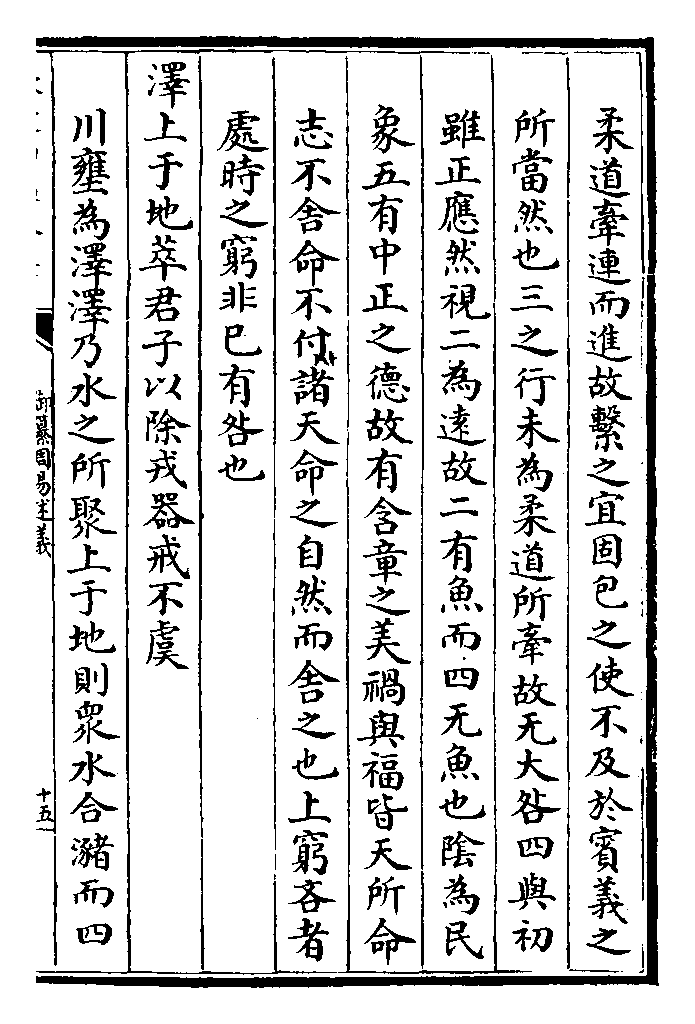 柔道牽連而進故繫之宜固包之使不及於賓義之
所當然也三之行未為柔道所牽故无大咎四與初
雖正應然視二為逺故二有魚而四无魚也陰為民
象五有中正之德故有含章之美禍與福皆天所命
志不舍命不付諸天命之自然而舍之也上窮吝者
處時之窮非已有咎也
澤上于地萃君子以除戎器戒不虞
川壅為澤澤乃水之所聚上于地則衆水合瀦而四
御纂周易述義
十五